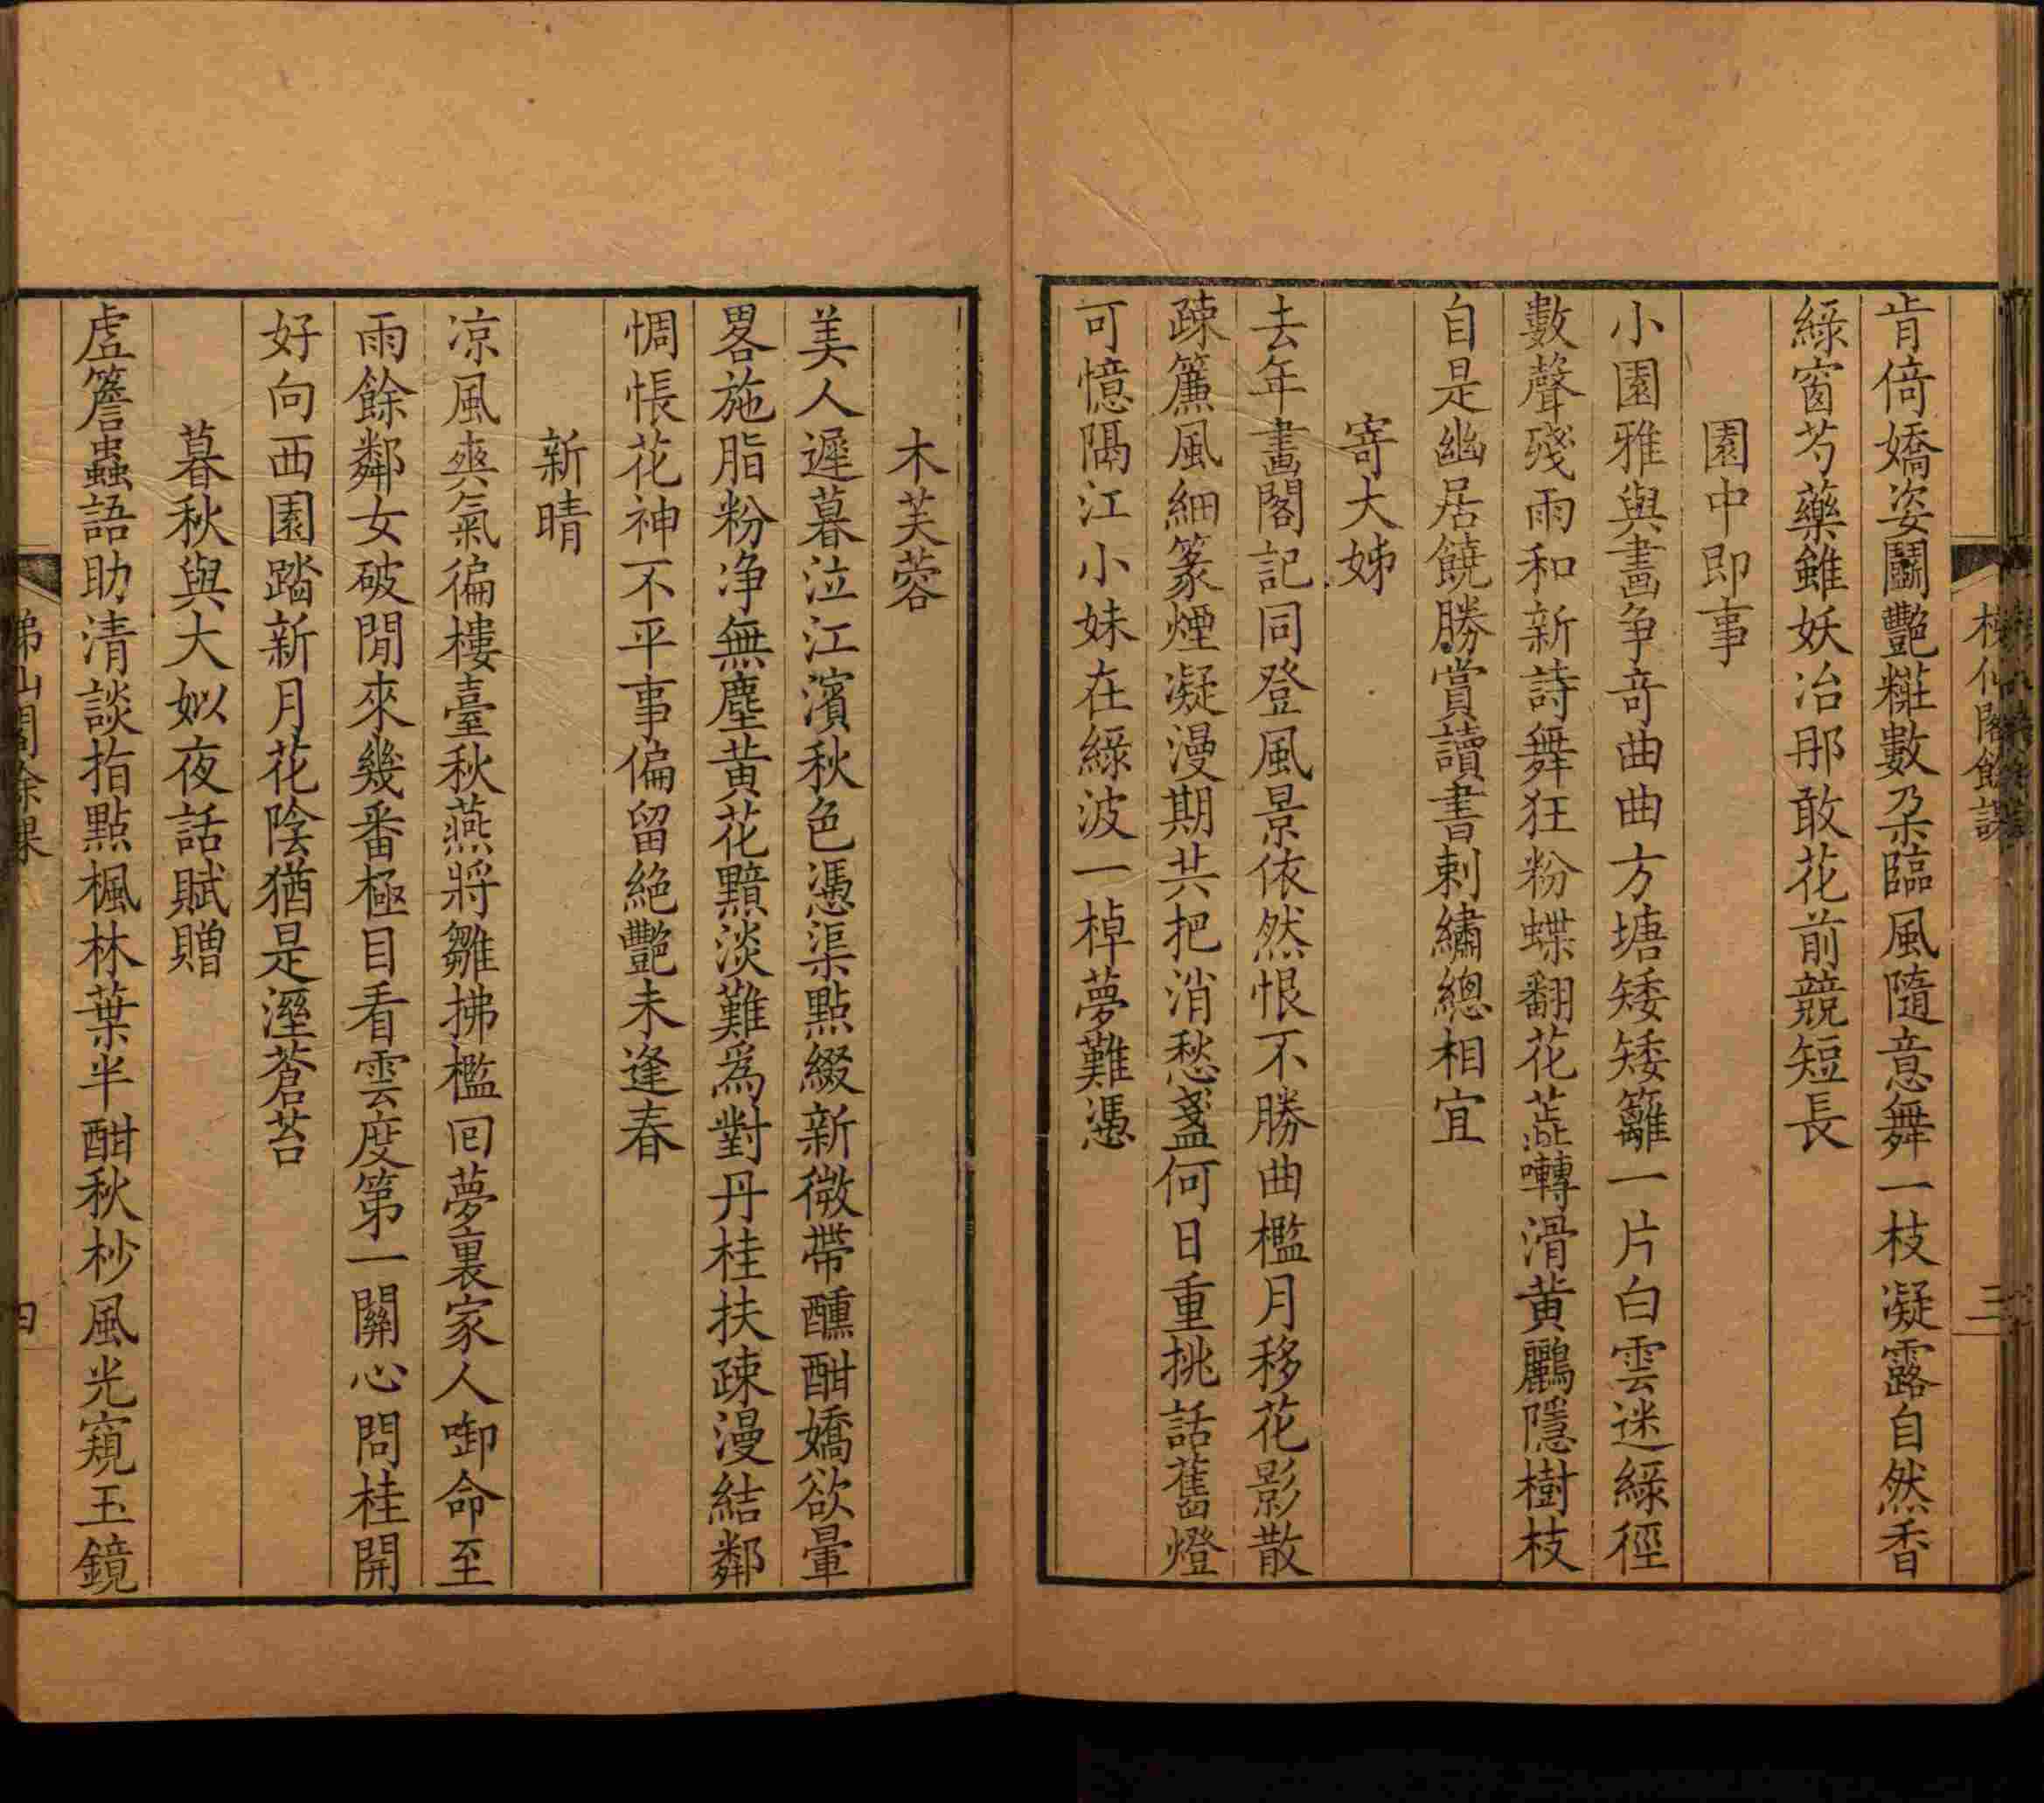 肯倚嬌姿鬭艷糚數朶臨風隨意舞一枝凝露自然香
綠窗芍藥雖妖冶那敢花前競短長
園中即事
小園雅與畫争竒曲曲方塘矮矮籬一片白雲迷綠徑
數聲殘雨和新詩舞狂粉蝶翻花蕊囀滑黄鸝隱樹枝
自是幽居饒勝賞讀書剌繡總相宜
寄大姊
去年畫閣記同登風景依然恨不勝曲檻月移花影散
疎簾風細篆煙凝漫期共把消愁盞何日重挑話舊燈
可憶隔江小妹在綠波一棹夢難憑
木芙蓉
美人遲暮泣江濱秋色憑渠點綴新微帶醺酣嬌欲暈
畧施脂粉净無塵黄花黯淡難爲對丹桂扶疎漫結鄰
惆悵花神不平事偏留絶艷未逢春
新晴
凉風爽氣徧樓臺秋燕將雛拂檻回夢裏家人啣命至
雨餘鄰女破閒來幾番極目看雲度第一關心問桂開
好向西園踏新月花陰猶是溼蒼苔
暮秋與大姒夜話賦贈
虚簷蟲語助清談指點楓林葉半酣秋杪風光窺玉鏡